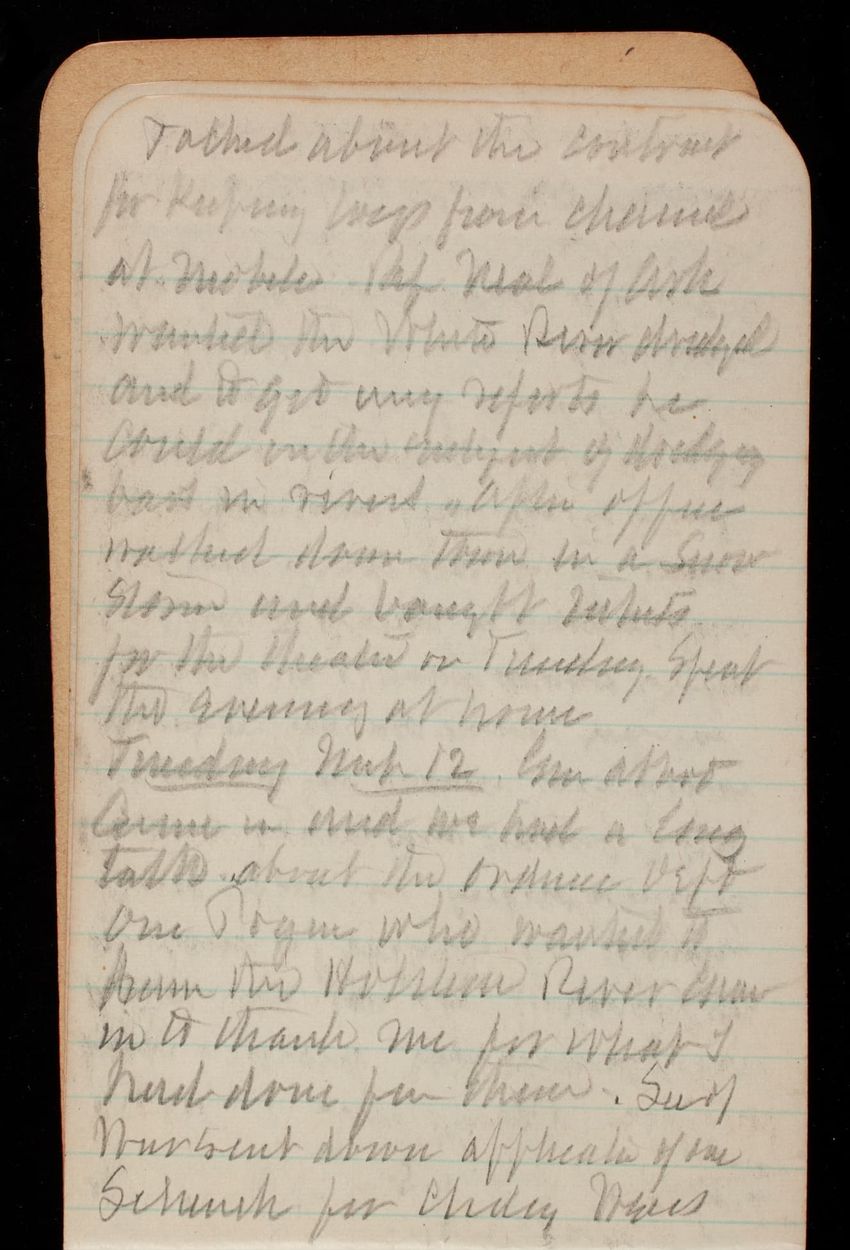 Talked about the contract
for keeping logs from channel
at Mobile Rep Neal of Ark
wanted the White River dredged
and to get any reports he
could on the subject of dredging
bars in rivers. After office
walked down town in a snow
storm and bought tickets
for the theatre on Tuesday. Spent
the evening at home
Tuesday Mch 12. Gen Abbot
came in and we had a long
talk about the Ordnce Dept
One who wanted it
from the Holston River came
in to thank me for what I
had done for them. Secy
War sent down of one
Schenck for